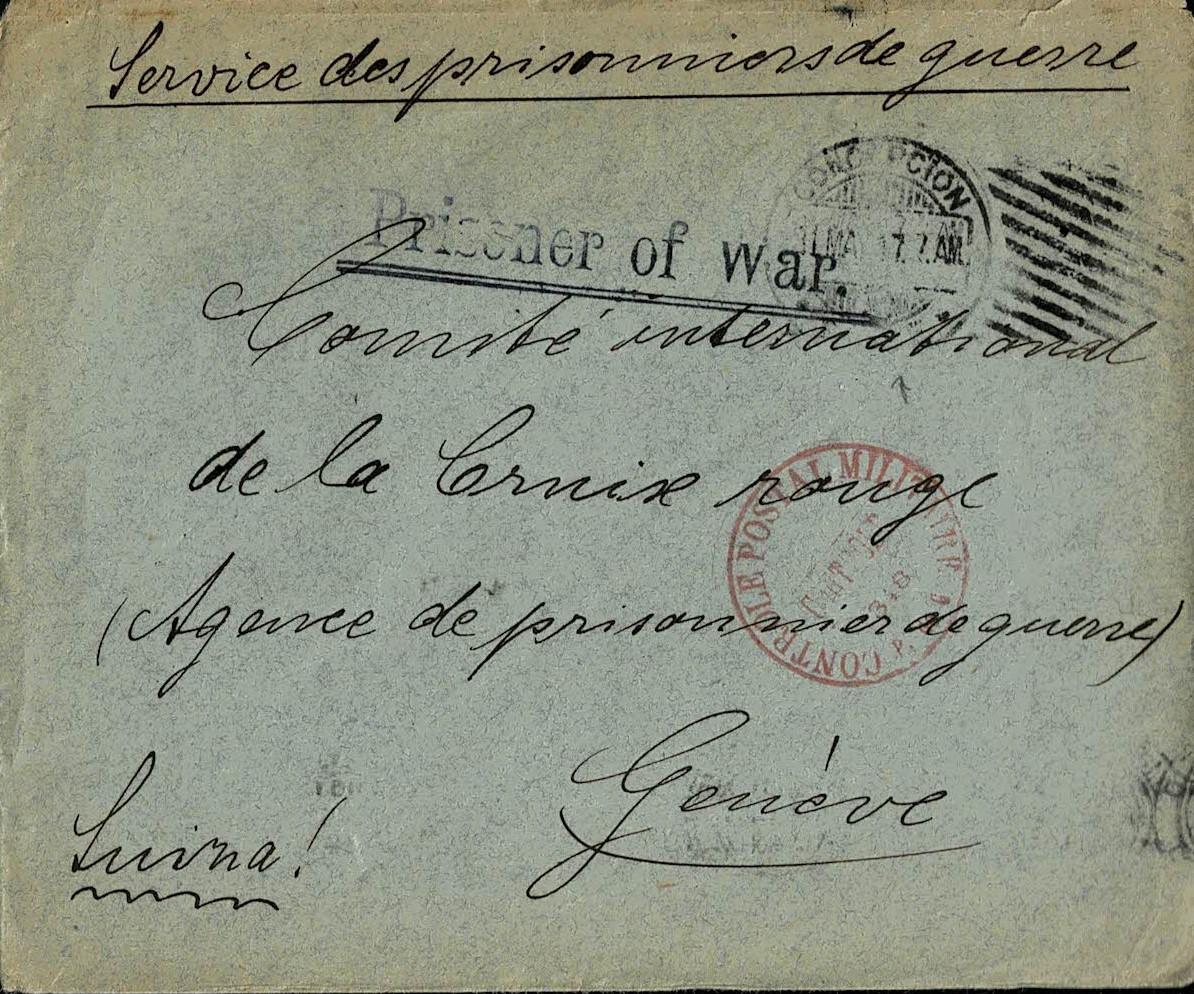 Service des prisonniers de guerre
CONCEPCION
7. AM.
Prisoner of War.
Comité international
de la Croix rouge
CONTROLE POSTAL MILITAIRE
(Agence de prisonnier de guerre)
Genève
Suiza!